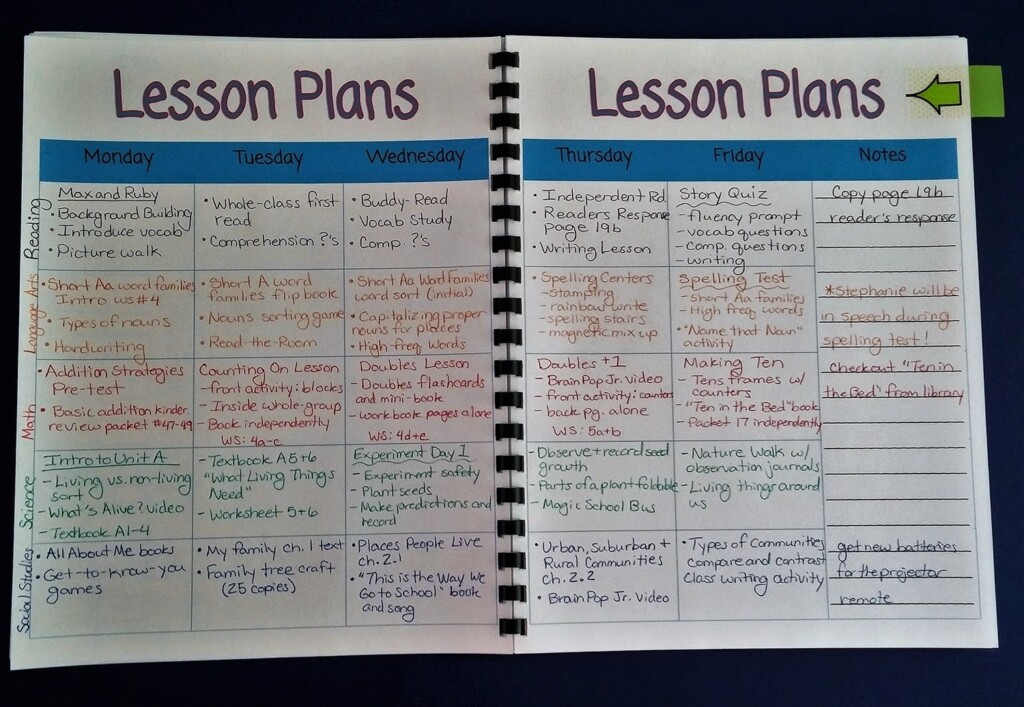 Lesson Plans
Monday
Tuesday
Wednesday
Reading
Max and Ruby
• Background Building
• Introduce vocab
• Picture walk
• Whole-class first
read
• Comprehension ?'s
• Buddy-Read
• Vocab Study
• Comp. ?'s
Language Arts
• Short Aa word families
Intro WS #4
• Types of nouns
• Handwriting
• Short A word
families flipbook
• Nouns sorting game
• Read-the-Room
• Short Aa Word Families
word sort (initial)
• Capitalizing proper
nouns for places
• High-freq words
Math
• Addition Strategies
Pre-test
• Basic addition kinder
review packet #47-49
Counting On Lesson
- front activity: blocks
- Inside whole-group
- Back independently
WS: 4a-c
Doubles Lesson
- Doubles flashcards
and mini-book
- workbook pages alone
WS: 4d+e
Science
Intro to Unit A
- Living vs. non-living
sort
- What's Alive? video
- Textbook A1-4
- Textbook A5+6
"What Living Things
Need"
- Worksheet 5+6
Experiment Day 1
- Experiment safety
- Plant seeds
- Make predictions and
record
Social Studies
• All About Me books
• Get-to-know-you
games
• My family ch. 1 text
• Family tree craft
(25 copies)
• Places People Live
ch. 2.1
• "This is the Way We
Go to School" book
and song
Lesson Plans
Thursday
Friday
Notes
• Independent Rd
• Readers Response
page 19b
• Writing Lesson
Story Quiz
- fluency prompt
- vocab questions
- comp. questions
- writing
Copy page 19b
reader's response
• Spelling Centers
- stamping
- rainbow write
- spelling stairs
- magnetic mix up
Spelling Test
- Short Aa families
- High freq words
• "Name that Noun"
activity
*Stephanie will be
in speech during
spelling test!
Doubles +1
- BrainPop Jr. video
- front activity: counters
- back pg. alone
WS: 5a+b
Making Ten
- Tens frames w/
counters
- "Ten in the Bed" book
- Packet 17 independently
Checkout "Ten in
the Bed" from library
- Observe + record seed
growth
- Parts of a plant foldable
- Magic School Bus
- Nature Walk w/
observation journals
- Living things around
us
• Urban, Suburban +
Rural Communities
Ch. 2.2
• BrainPop Jr. Video
• Types of Communities
compare and contrast
Class writing activity
get new batteries
for the projector
remote